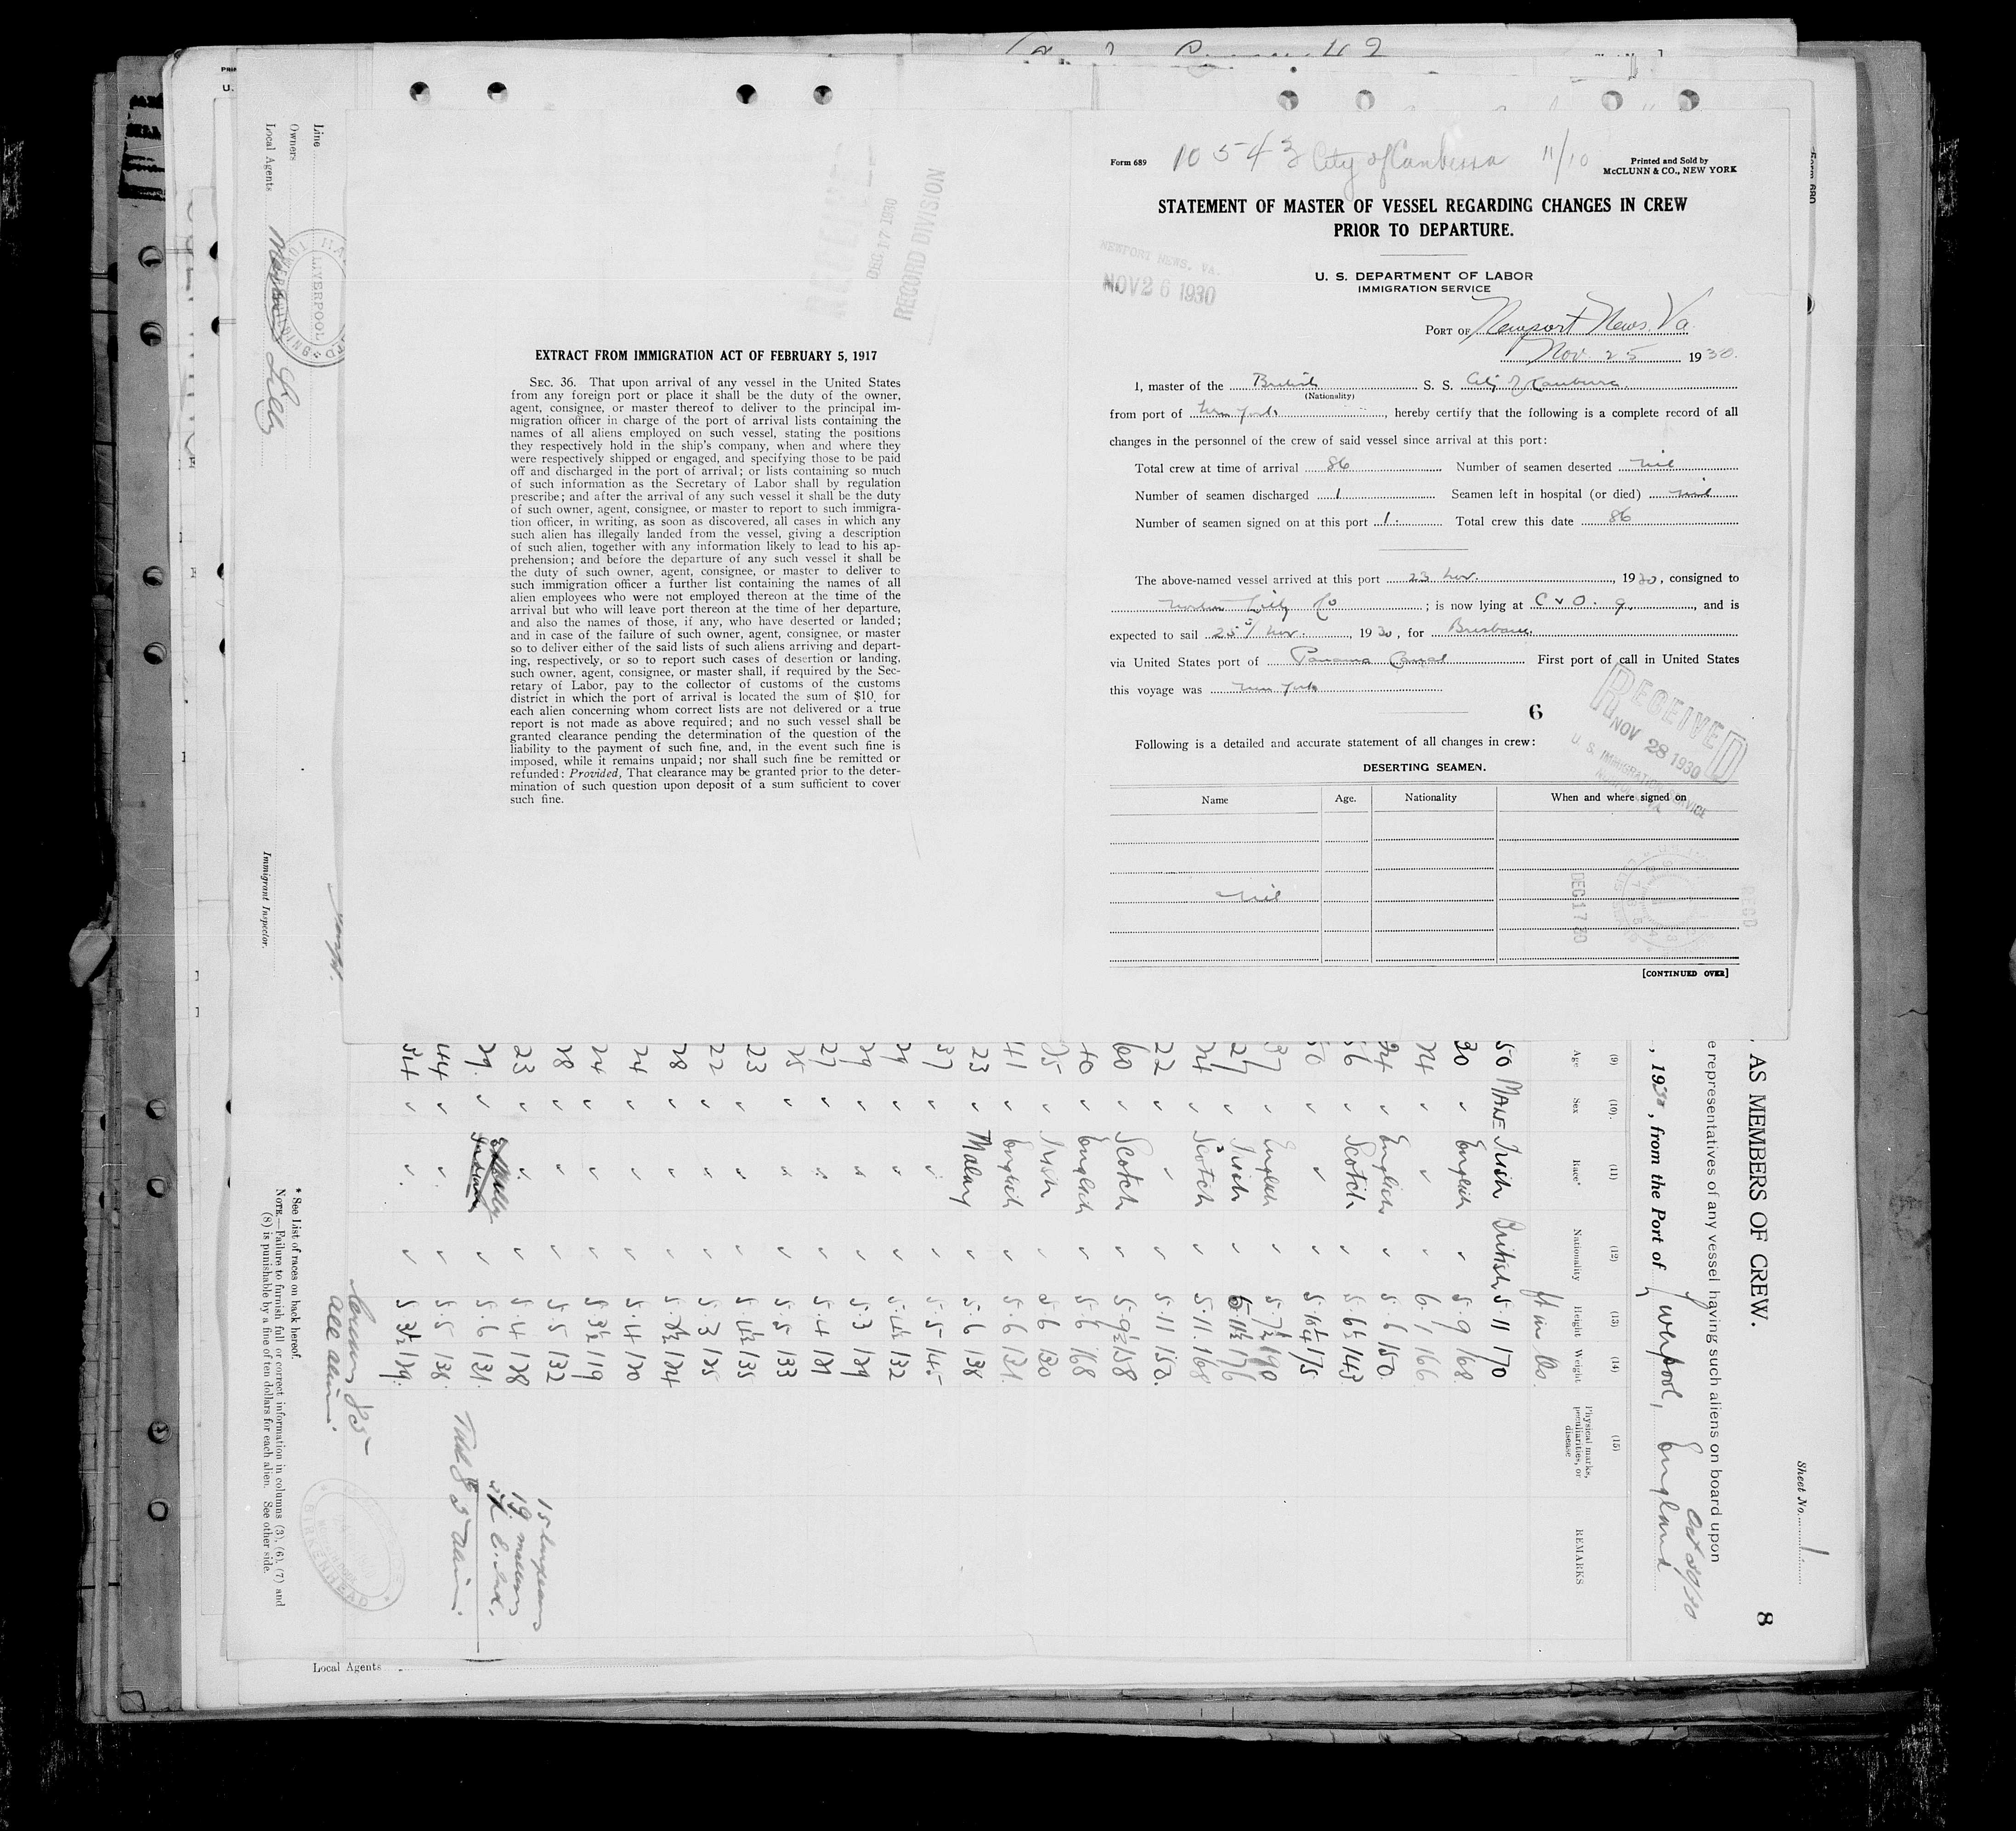 Form 689
10543 City of Canberra 11/10
Printed and Sold by
McCLUNN & CO., NEW YORK
STATEMENT OF MASTER OF VESSEL REGARDING CHANGES IN CREW
PRIOR TO DEPARTURE.
NEWPORT NEWS, VA.
NOV 26 1930
U. S. DEPARTMENT OF LABOR
IMMIGRATION SERVICE
PORT OF Newport News, Va.
Nov. 25 1930.
I, master of the British S. S. City of Canberra.
(Nationality)
from port of New York, hereby certify that the following is a complete record of all
changes in the personnel of the crew of said vessel since arrival at this port:
Total crew at time of arrival 86 Number of seamen deserted nil
Number of seamen discharged 1 Seamen left in hospital (or died) nil
Number of seamen signed on at this port 1. Total crew this date 86
The above-named vessel arrived at this port 23 Nov. , 1930, consigned to
Norton Lilly Co ; is now lying at C & O. 9. , and is
expected to sail 25th Nov. , 1930, for Brisbane.
via United States port of Panama Canal First port of call in United States
this voyage was New York
6
RECEIVED
NOV 28 1930
U. S. IMMIGRATION SERVICE
Following is a detailed and accurate statement of all changes in crew:
DESERTING SEAMEN.
Name Age. Nationality When and where signed on
nil
DEC 17 30
REC'D
[CONTINUED OVER]
DEC 17 1930
RECORD DIVISION
EXTRACT FROM IMMIGRATION ACT OF FEBRUARY 5, 1917
SEC. 36. That upon arrival of any vessel in the United States
from any foreign port or place it shall be the duty of the owner,
agent, consignee, or master thereof to deliver to the principal im-
migration officer in charge of the port of arrival lists containing the
names of all aliens employed on such vessel, stating the positions
they respectively hold in the ship's company, when and where they
were respectively shipped or engaged, and specifying those to be paid
off and discharged in the port of arrival; or lists containing so much
of such information as the Secretary of Labor shall by regulation
prescribe; and after the arrival of any such vessel it shall be the duty
of such owner, agent, consignee, or master to report to such immigra-
tion officer, in writing, as soon as discovered, all cases in which any
such alien has illegally landed from the vessel, giving a description
of such alien, together with any information likely to lead to his ap-
prehension; and before the departure of any such vessel it shall be
the duty of such owner, agent, consignee, or master to deliver to
such immigration officer a further list containing the names of all
alien employees who were not employed thereon at the time of the
arrival but who will leave port thereon at the time of her departure,
and also the names of those, if any, who have deserted or landed;
and in case of the failure of such owner, agent, consignee, or master
so to deliver either of the said lists of such aliens arriving and depart-
ing, respectively, or so to report such cases of desertion or landing,
such owner, agent, consignee, or master shall, if required by the Sec-
retary of Labor, pay to the collector of customs of the customs
district in which the port of arrival is located the sum of $10 for
each alien concerning whom correct lists are not delivered or a true
report is not made as above required; and no such vessel shall be
granted clearance pending the determination of the question of the
liability to the payment of such fine, and, in the event such fine is
imposed, while it remains unpaid; nor shall such fine be remitted or
refunded: Provided, That clearance may be granted prior to the deter-
mination of such question upon deposit of a sum sufficient to cover
such fine.
Sheet No. 1
8
, AS MEMBERS OF CREW.
e representatives of any vessel having such aliens on board upon
, 1930, from the Port of Liverpool, England Oct 29/30
(9) (10) (11) (12) (13) (14) (15)
Age Sex Race* Nationality Height Weight Physical marks, peculiarities, or disease REMARKS
ft ins lbs.
50 MALE Irish British 5.11 170
30 ✓ English ✓ 5.9 168
24 ✓ ✓ ✓ 6.1 166
24 ✓ English ✓ 5.6 150
56 ✓ Scotch ✓ 5.6½ 143
50 ✓ ✓ ✓ 5.10¼ 175
37 ✓ English ✓ 5.7½ 190
27 ✓ Irish ✓ 5.11½ 176
24 ✓ Scotch ✓ 5.11. 168
22 ✓ ✓ ✓ 5.11 150.
60 ✓ Scotch ✓ 5.9½ 158
40 ✓ English ✓ 5.6 168
25 ✓ Irish ✓ 5.6 130
41 ✓ English ✓ 5.6 131.
23 ✓ Malay ✓ 5.6 138
37 ✓ ✓ ✓ 5.5 145
29 ✓ ✓ ✓ 5.4½ 132
29 ✓ ✓ ✓ 5.3 129
27 ✓ ✓ ✓ 5.4 127
25 ✓ ✓ ✓ 5.5 133
23 ✓ ✓ ✓ 5.4½ 135
22 ✓ ✓ ✓ 5.3 125
28 ✓ ✓ ✓ 5.3½ 124
24 ✓ ✓ ✓ 5.4 120
24 ✓ ✓ ✓ 5.3½ 119
28 ✓ ✓ ✓ 5.5 132
23 ✓ ✓ ✓ 5.4 128
29. ✓ ✓ 5.6 131.
44 ✓ ✓ ✓ 5.5 138.
34 ✓ ✓ ✓ 5.3½ 129.
15 Europeans
19 Malays
E. Ind.
Total 85 Aliens.
85
all aliens.
* See List of races on back hereof.
NOTE.—Failure to furnish full or correct information in columns (3), (6), (7) and
(8) is punishable by a fine of ten dollars for each alien. See other side.
BIRKENHEAD
Line
Owners
Local Agents Norton Lilly
LIVERPOOL
Immigrant Inspector.
Local Agents